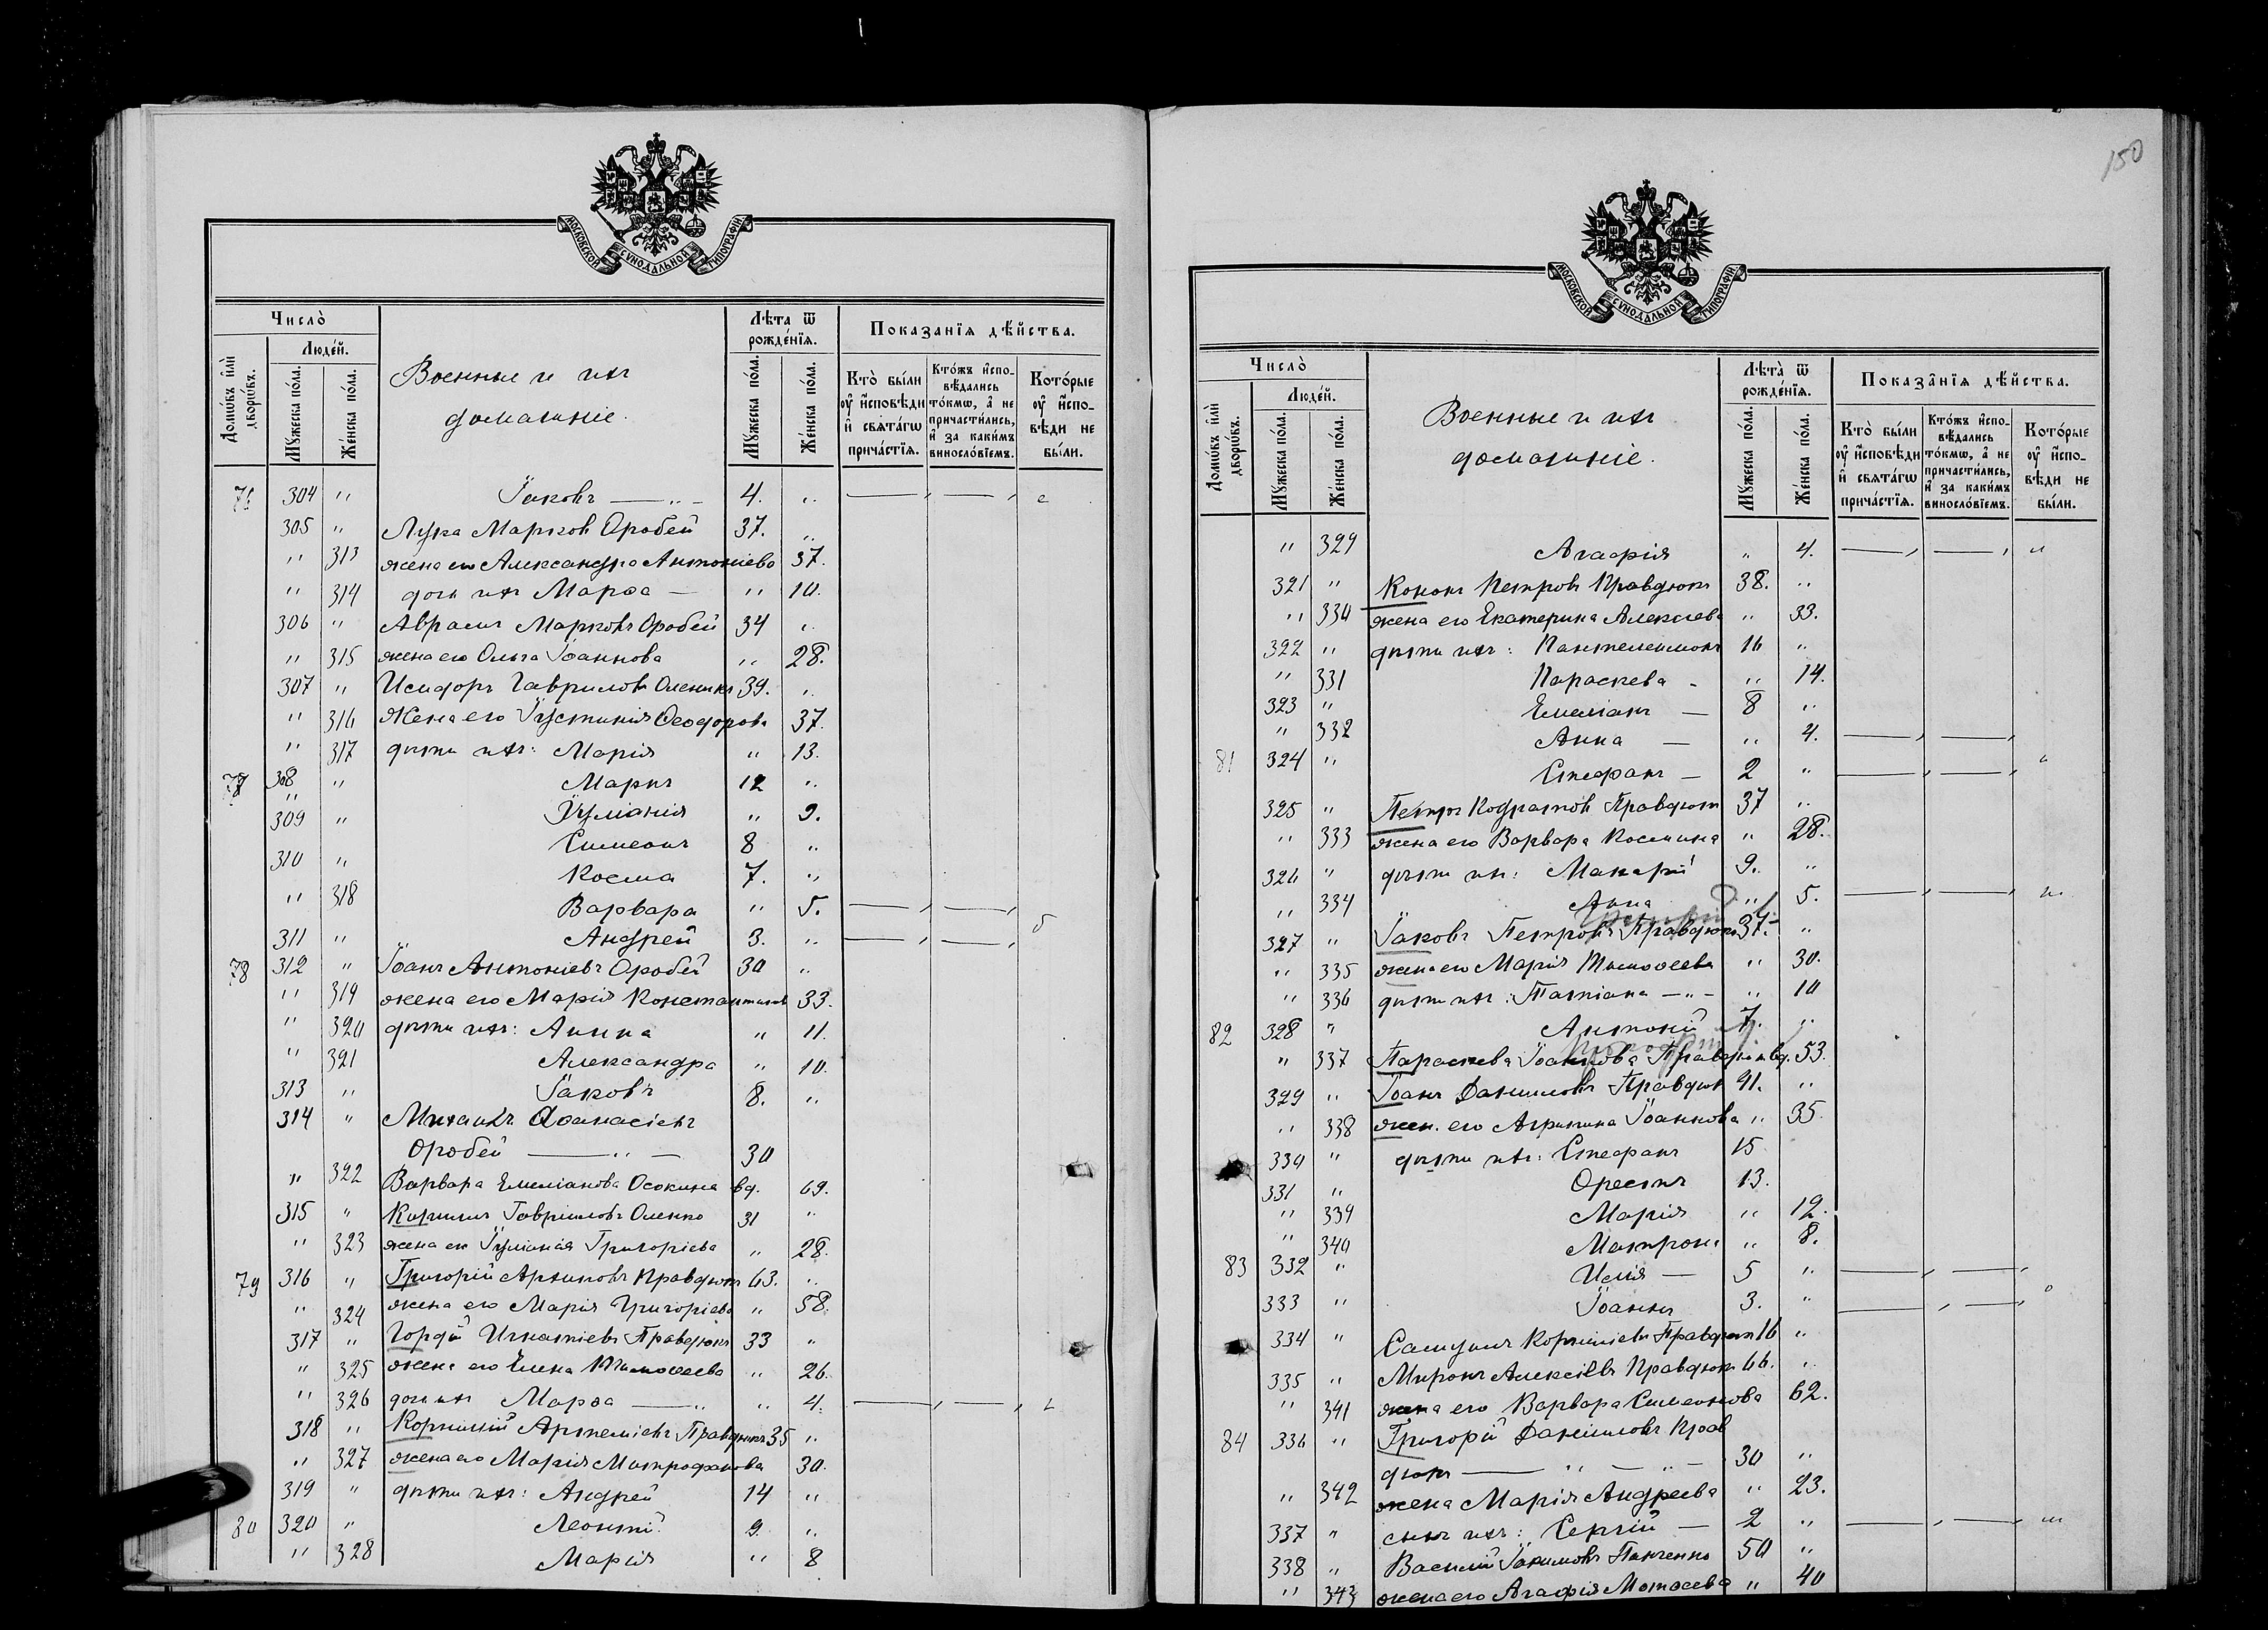 150
МОСКОВСКОЙ СѴНОДАЛЬНОЙ ТИПОГРАФІИ
Число̀
Лѣта ѿ рожде́нїѧ.
Показанїѧ дѣ́йства.
Домѡ́въ и҆лѝ дворѡ́въ.
Люде́й.
Мꙋ́жеска по́ла.
Же́нска по́ла.
Военные и ихъ
домашніе.
Мꙋ́жеска по́ла.
Же́нска по́ла.
Кто̀ бы́ли оу҆ и҆сповѣ́ди и҆ свѧта́гѡ прича́стїѧ.
Кто́жъ и҆спо-вѣ́дались то́кмѡ, а҆ не причасти́лись, и҆ за каки́мъ винослове́їемъ.
Кото́рые оу҆ и҆спо-вѣ́ди не бы́ли.
304 " Іаковъ — " — 4. "
305 " Лука Марковъ Оробей 37. "
" 313 жена его Александра Антоніева 37.
" 314 дочь ихъ Марѳа — " 10.
306 " Аврамъ Марковъ Оробей 34 "
" 315 жена его Ольга Іоаннова " 28.
307 " Исидоръ Гавриловъ 39. "
" 316 Жена его Іустинія Ѳеодорова 37.
" 317 дѣти ихъ: Марія " 13.
78 308 " Маркъ 12 "
309 " Іуліанія " 9.
310 " Симеонъ 8 "
" Косма 7. "
" 318 Варвара " 5.
311 " Андрей 3. "
78 312 " Іоанъ Антоніевъ Оробей 30 "
" 319 жена его Марія 33.
" 320 дѣти ихъ: Анна " 11.
" 321 Александра " 10.
313 " Іаковъ 8. "
314 " Михаилъ Аѳанасіевъ
Оробей — " — 30
" 322 Варвара Емеліанова Осокина вд. 69.
315 " Гавриловъ Оленко 31 "
" 323 жена его Іуліанія Григоріева " 28.
79 316 " Григорій Правдюкъ 63. "
" 324 жена его Марія Григоріева " 58.
317 " Гордій Игнатіевъ Правдюкъ 33 "
" 325 жена его Елена Тимоѳеева " 26.
" 326 дочь ихъ Марѳа — " " 4.
318 " Корнилій Артеміевъ Правдюкъ 35 "
" 327 жена его Марія Митрофанова 30.
319 " дѣти ихъ: Андрей 14 "
80 320 " Леонтій 9. "
" 328 Марія " 8
МОСКОВСКОЙ СѴНОДАЛЬНОЙ ТИПОГРАФІИ
Число̀
Лѣта̀ ѿ рожде́нїѧ.
Показа̂нїѧ дѣ́йства.
Домѡ́въ и҆лѝ дворѡ́въ.
Люде́й.
Мꙋ́жеска по́ла.
Же́нска по́ла.
Военные и ихъ
домашніе.
Мꙋ́жеска по́ла.
Же́нска по́ла.
Кто̀ бы́ли оу҆ и҆сповѣ́ди и҆ свѧта́гѡ прича́стїѧ.
Кто́жъ и҆спо-вѣ́дались то́кмѡ, а҆ не причасти́лись, и҆ за каки́мъ винослове́їемъ.
Кото́рые оу҆ и҆спо-вѣ́ди не бы́ли.
" 329 Агафія " 4.
321 " Кононъ Петровъ Правдюкъ 38. "
" 330 жена его Екатерина Алексіева " 33.
322 " дѣти ихъ: Пантелеимонъ 16 "
" 331 Параскева - " 14.
323 " Емеліанъ — 8 "
" 332 Анна — " 4.
81 324 " Стефанъ — 2 "
325 " Петръ Кодратовъ Правдюкъ 37 "
" 333 жена его Варвара Космина " 28.
326 " дѣти ихъ: Макарій 9. "
" 334 Анна " 5.
327 " Іаковъ Петровъ Правдюкъ 37. "
" 335 жена его Марія Тимоѳеева " 30.
" 336 дѣти ихъ: Татіана — " — " 10
82 328 " Антоній 7. "
" 337 Параскева Іоаннова вд. 53.
329 " Іоанъ Даниловъ Правдюк 41. "
" 338 жен. его Агрипина Іоаннова " 35.
330 " дѣти ихъ: Стефанъ 15
331 " Орестъ 13.
" 339 Марія " 12.
" 340 Матрона " 8.
83 332 " Илія — 5 "
333 " Іоаннъ 3. "
334 " Самуилъ Корниліевъ Правдюкъ 16 "
335 " Миронъ Алексіевъ Правдюкъ 66. "
" 341 жена его Варвара Симеонова 62.
84 336 " Григорій Даниловъ Прав
дюкъ — " — " — 30 "
" 342 жена Марія Андреева " 23.
337 " сынъ ихъ: Сергій — 2 "
338 " Василій Іакимовъ Панченко 50 "
" 343 жена его Агафія Матѳеева " 40